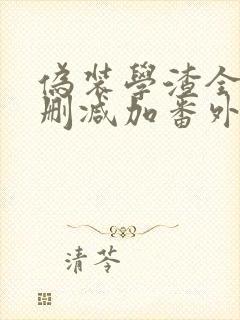 偽裝學渣全
刪減加番外
清苓